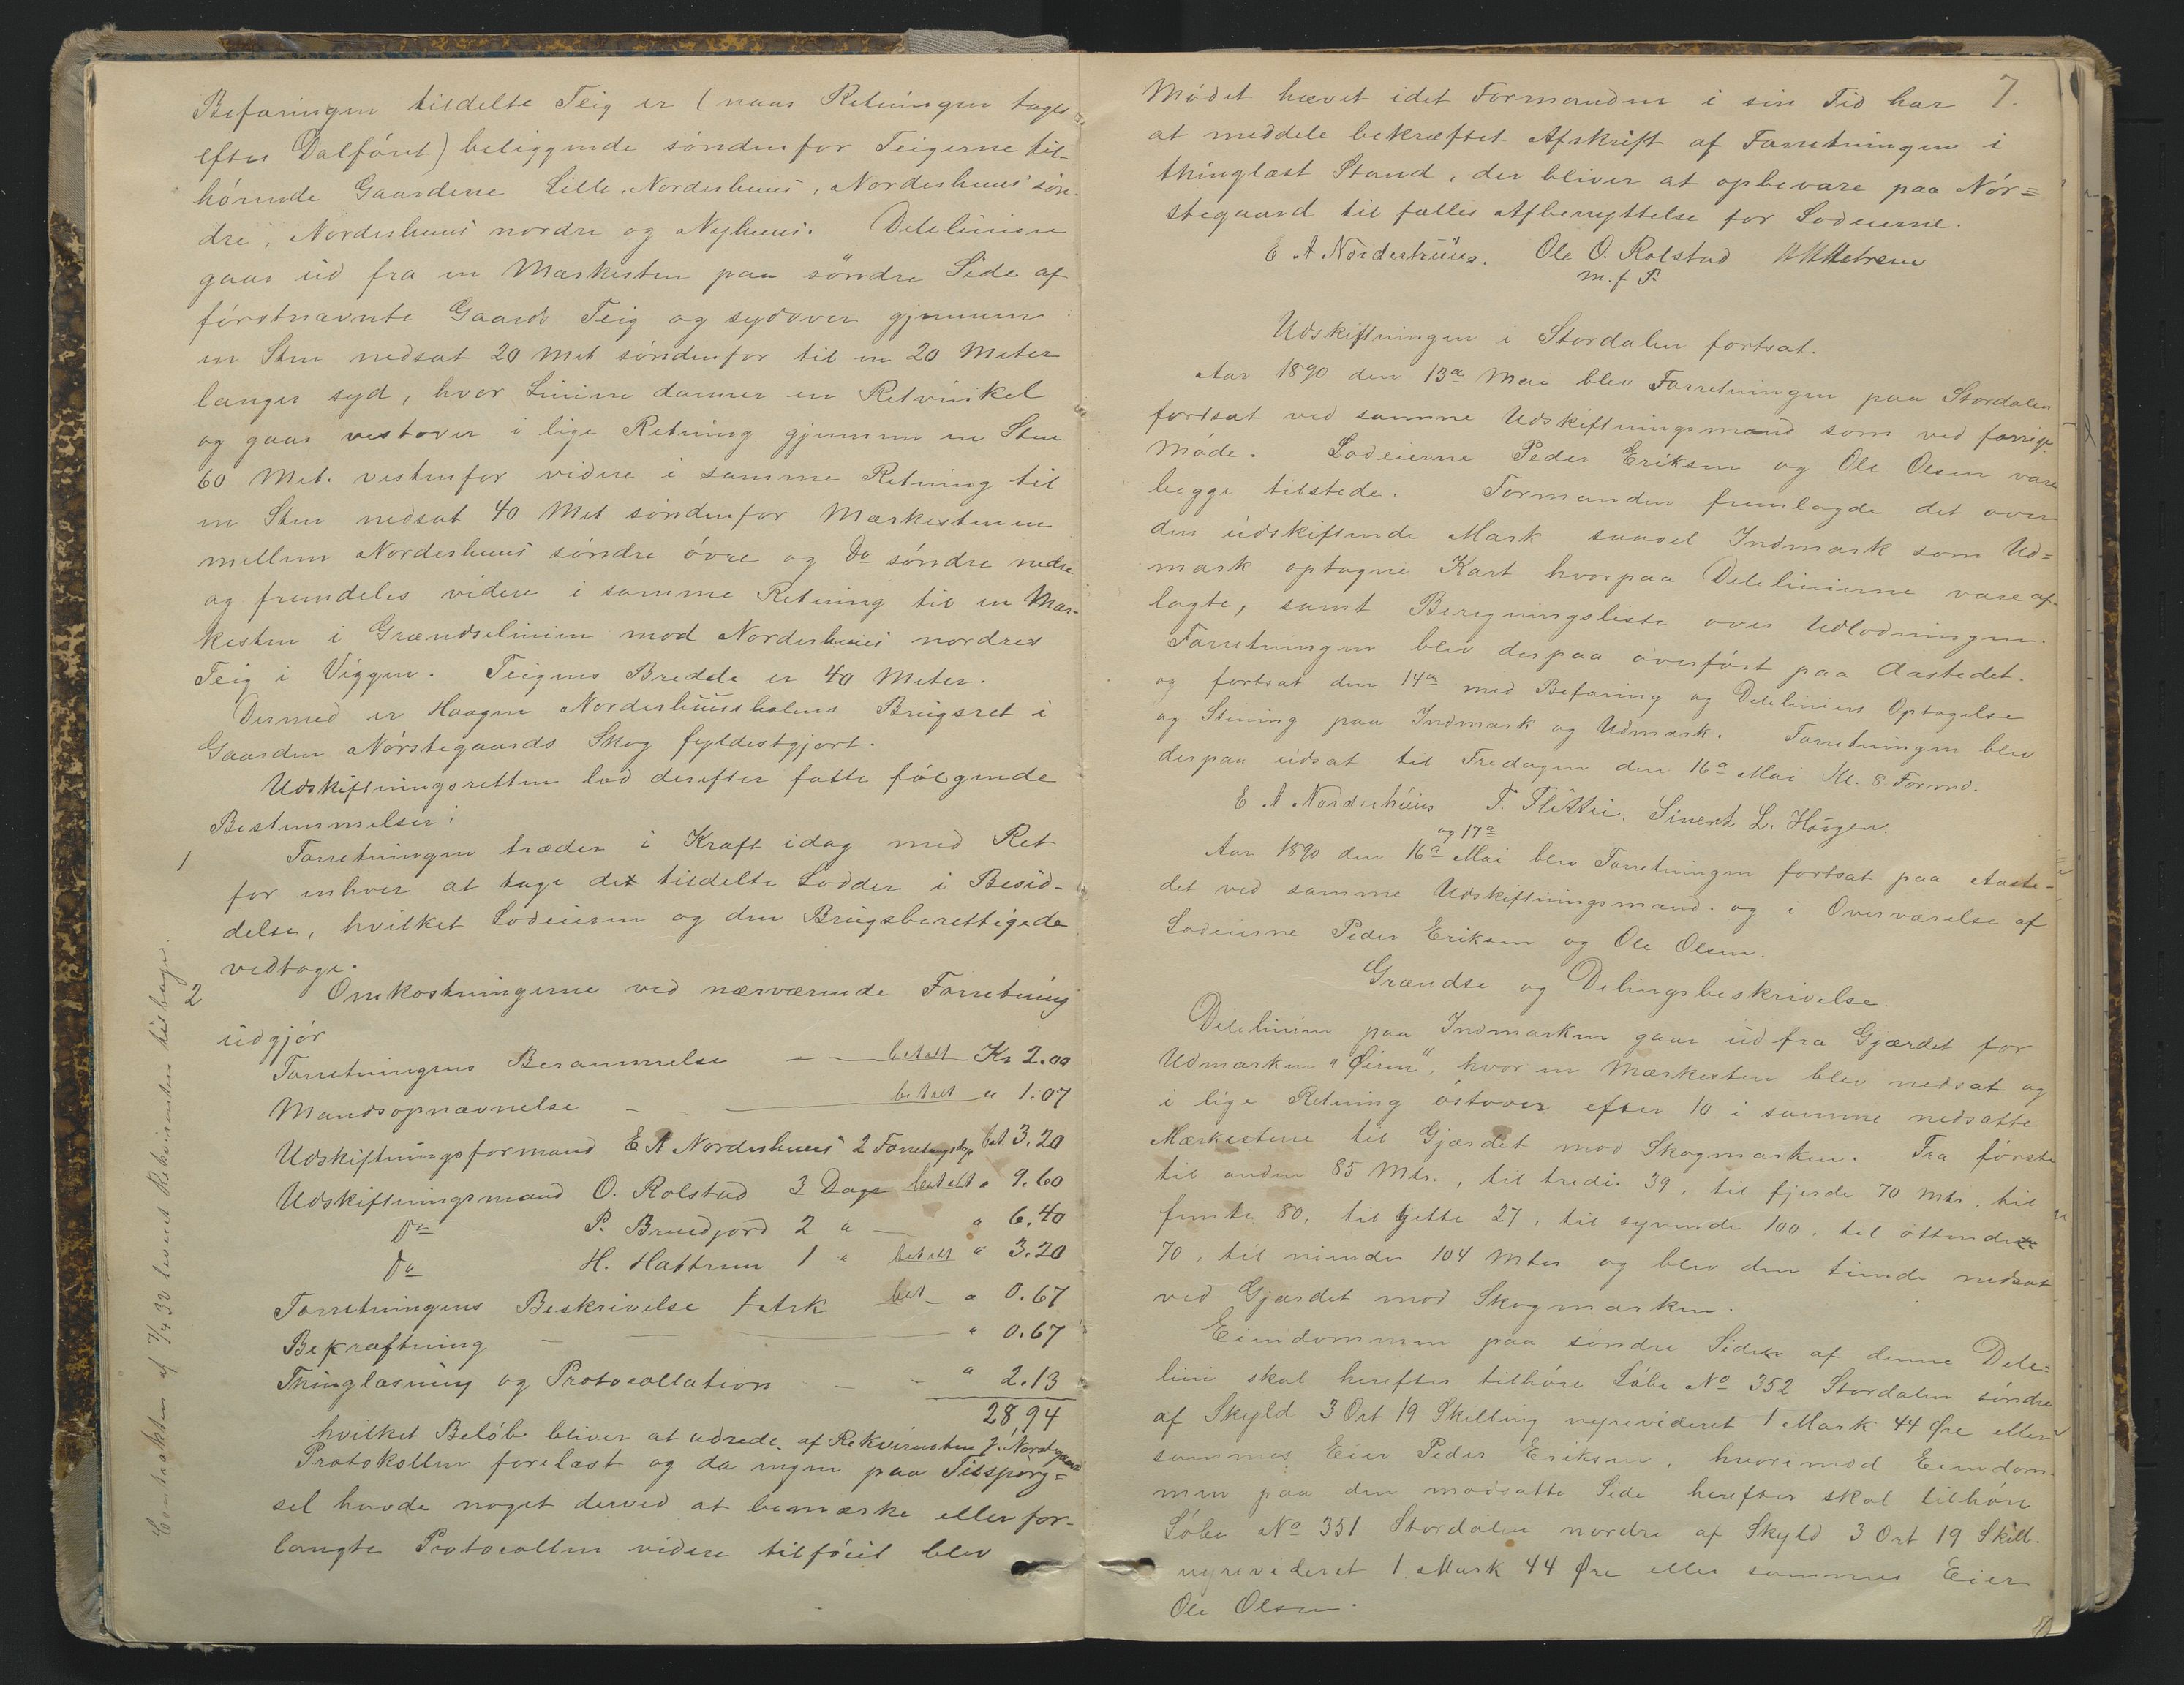 Befaringen tildelte Teig er (naar Retningen tages
efter Dalføret) beliggende søndenfor Teigerne til-
hørende Gaardene Lille-Norderhuus, Norderhuus søn-
dre, Norderhuus nordre og Nyhuus. Delelinien
gaar ud fra en Mærkesten paa søndre Side af
førstnævnte Gaards Teig og sydover gjennem
en Sten nedsat 20 Met søndenfor til en 20 Meter
længer syd, hvor Linien danner en Retvinkel
og gaar vestover i lige Retning gjennem en Sten
60 Met. vestenfor videre i samme Retning til
en Sten nedsat 40 Met søndenfor Mærkestenen
mellem Norderhuus søndre øvre og Do søndre nedre
og fremdeles videre i samme Retning til en Mær-
kesten i Grændselinien mod Norderhuus nordres
Teig i Viggen. Teigens Bredde er 40 Meter.
Dermed er Haagen Norderhuusholens Brugsret i
Gaarden Nørstegaards Skog fyldestgjort.
Udskiftningsretten lod derefter fatte følgende
Bestemmelser:
1 Forretningen træder i Kraft idag med Ret
for enhver at tage det tildelte Lodder i Besid-
delse, hvilket Lodeieren og den Brugsberettigede
vedtage.
2 Omkostningerne ved nærværende Forretning
udgjør
Forretningens Berammelse — — betalt Kr 2.00
Mandsopnævnelse — betalt " 1.07
Udskiftningsformand E A Norderhuus 2 Forretningsdage bet. 3.20
Udskiftningsmand O. Rolstad 3 Dage betalt " 9.60
Do P. Bruedjord 2 " — " 6.40
Do H. Hattrem 1 " betalt " 3.20
Forretningens Beskrivelse 1 Ark bet — " 0.67
Bekræftning — — " 0.67
Thinglæsning og Protocollation — — " 2.13
28,94
hvilket Beløb bliver at udrede af Rekvirenten J. Nørstegaard
Protokollen forelæst og da ingen paa Tilspørg=
sel havde noget derved at bemærke eller for-
langte Protocollen videre tilføiet blev
Contrakten af 7/4 30 leveret Rekvirenten tilbage.
7.
Mødet hævet idet Formanden i sin Tid har
at meddele bekræftet Afskrift af Forretningen i
thinglæst Stand, der bliver at opbevare paa Nør=
stegaard til fælles Afbenyttelse for Lodeierne.
E A Norderhuus. Ole O. Rolstad HHattrem
m. f P.
Udskiftningen i Stordalen fortsat.
Aar 1890 den 13a Mai blev Forretningen paa Stordalen
fortsat ved samme Udskiftningsmænd som ved forrige
Møde. Lodeierne Peder Eriksen og Ole Olsen vare
begge tilstede. Formanden fremlagde det over
den udskiftende Mark saavel Indmark som Ud=
mark optagne Kart hvorpaa Delelinierne vare af-
lagte, samt Beregningsliste over Udlodningen.
Forretningen blev derpaa overført paa Aastedet.
og fortsat den 14a med Befaring og Deleliniers Optagelse
og Stening paa Indmark og Udmark. Forretningen blev
derpaa udsat til Fredagen den 16a Mai Kl. 8 Formd.
E A Norderhuus T. Flittie. Sivert L. Haugen.
og 17a
Aar 1890 den 16a Mai blev Forretningen fortsat paa Aaste-
det ved samme Udskiftningsmænd og i Overværelse af
Lodeierne Peder Eriksen og Ole Olsen.
Grændse og Delingsbeskrivelse.
Delelinien paa Indmarken gaar ud fra Gjærdet for
Udmarken "Øien", hvor en Mærkesten blev nedsat og
i lige Retning østover efter 10 i samme nedsatte
Mærkestene til Gjærdet mod Skogmarken. Fra første
til anden 85 Mtr., til tredie 39, til fjerde 70 Mtr, til
femte 80, til sjette 27, til syvende 100, til ottende
70, til niende 104 Mter og blev den tiende nedsat
ved Gjærdet mod Skogmarken.
Eiendommen paa søndre Side af denne Dele=
linie skal herefter tilhøre Løbe No 352 Stordalen søndre
af Skyld 3 Ort 19 Skilling nyrevideret 1 Mark 44 Øre eller
sammes Eier Peder Eriksen, hvorimod Eiendom-
men paa den modsatte Side herefter skal tilhøre
Løbe No 351 Stordalen nordre af Skyld 3 Ort 19 Skill.
nyrevideret 1 Mark 44 Øre eller sammes Eier
Ole Olsen.